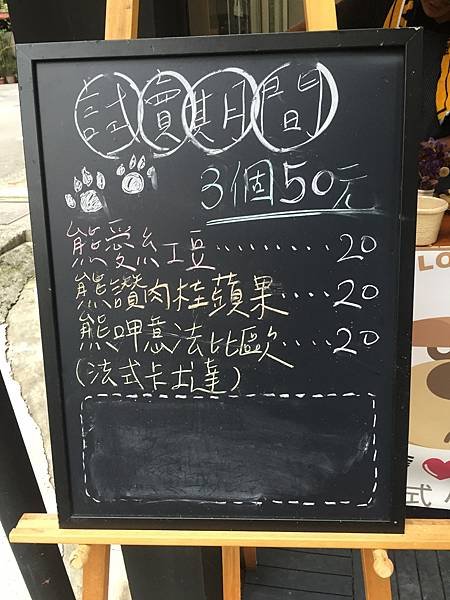 試賣期間
3個50元
熊愛紅豆.........20
熊讚肉桂蘋果....20
熊呷意法比歐.....20
(法式卡士達)
LO
式